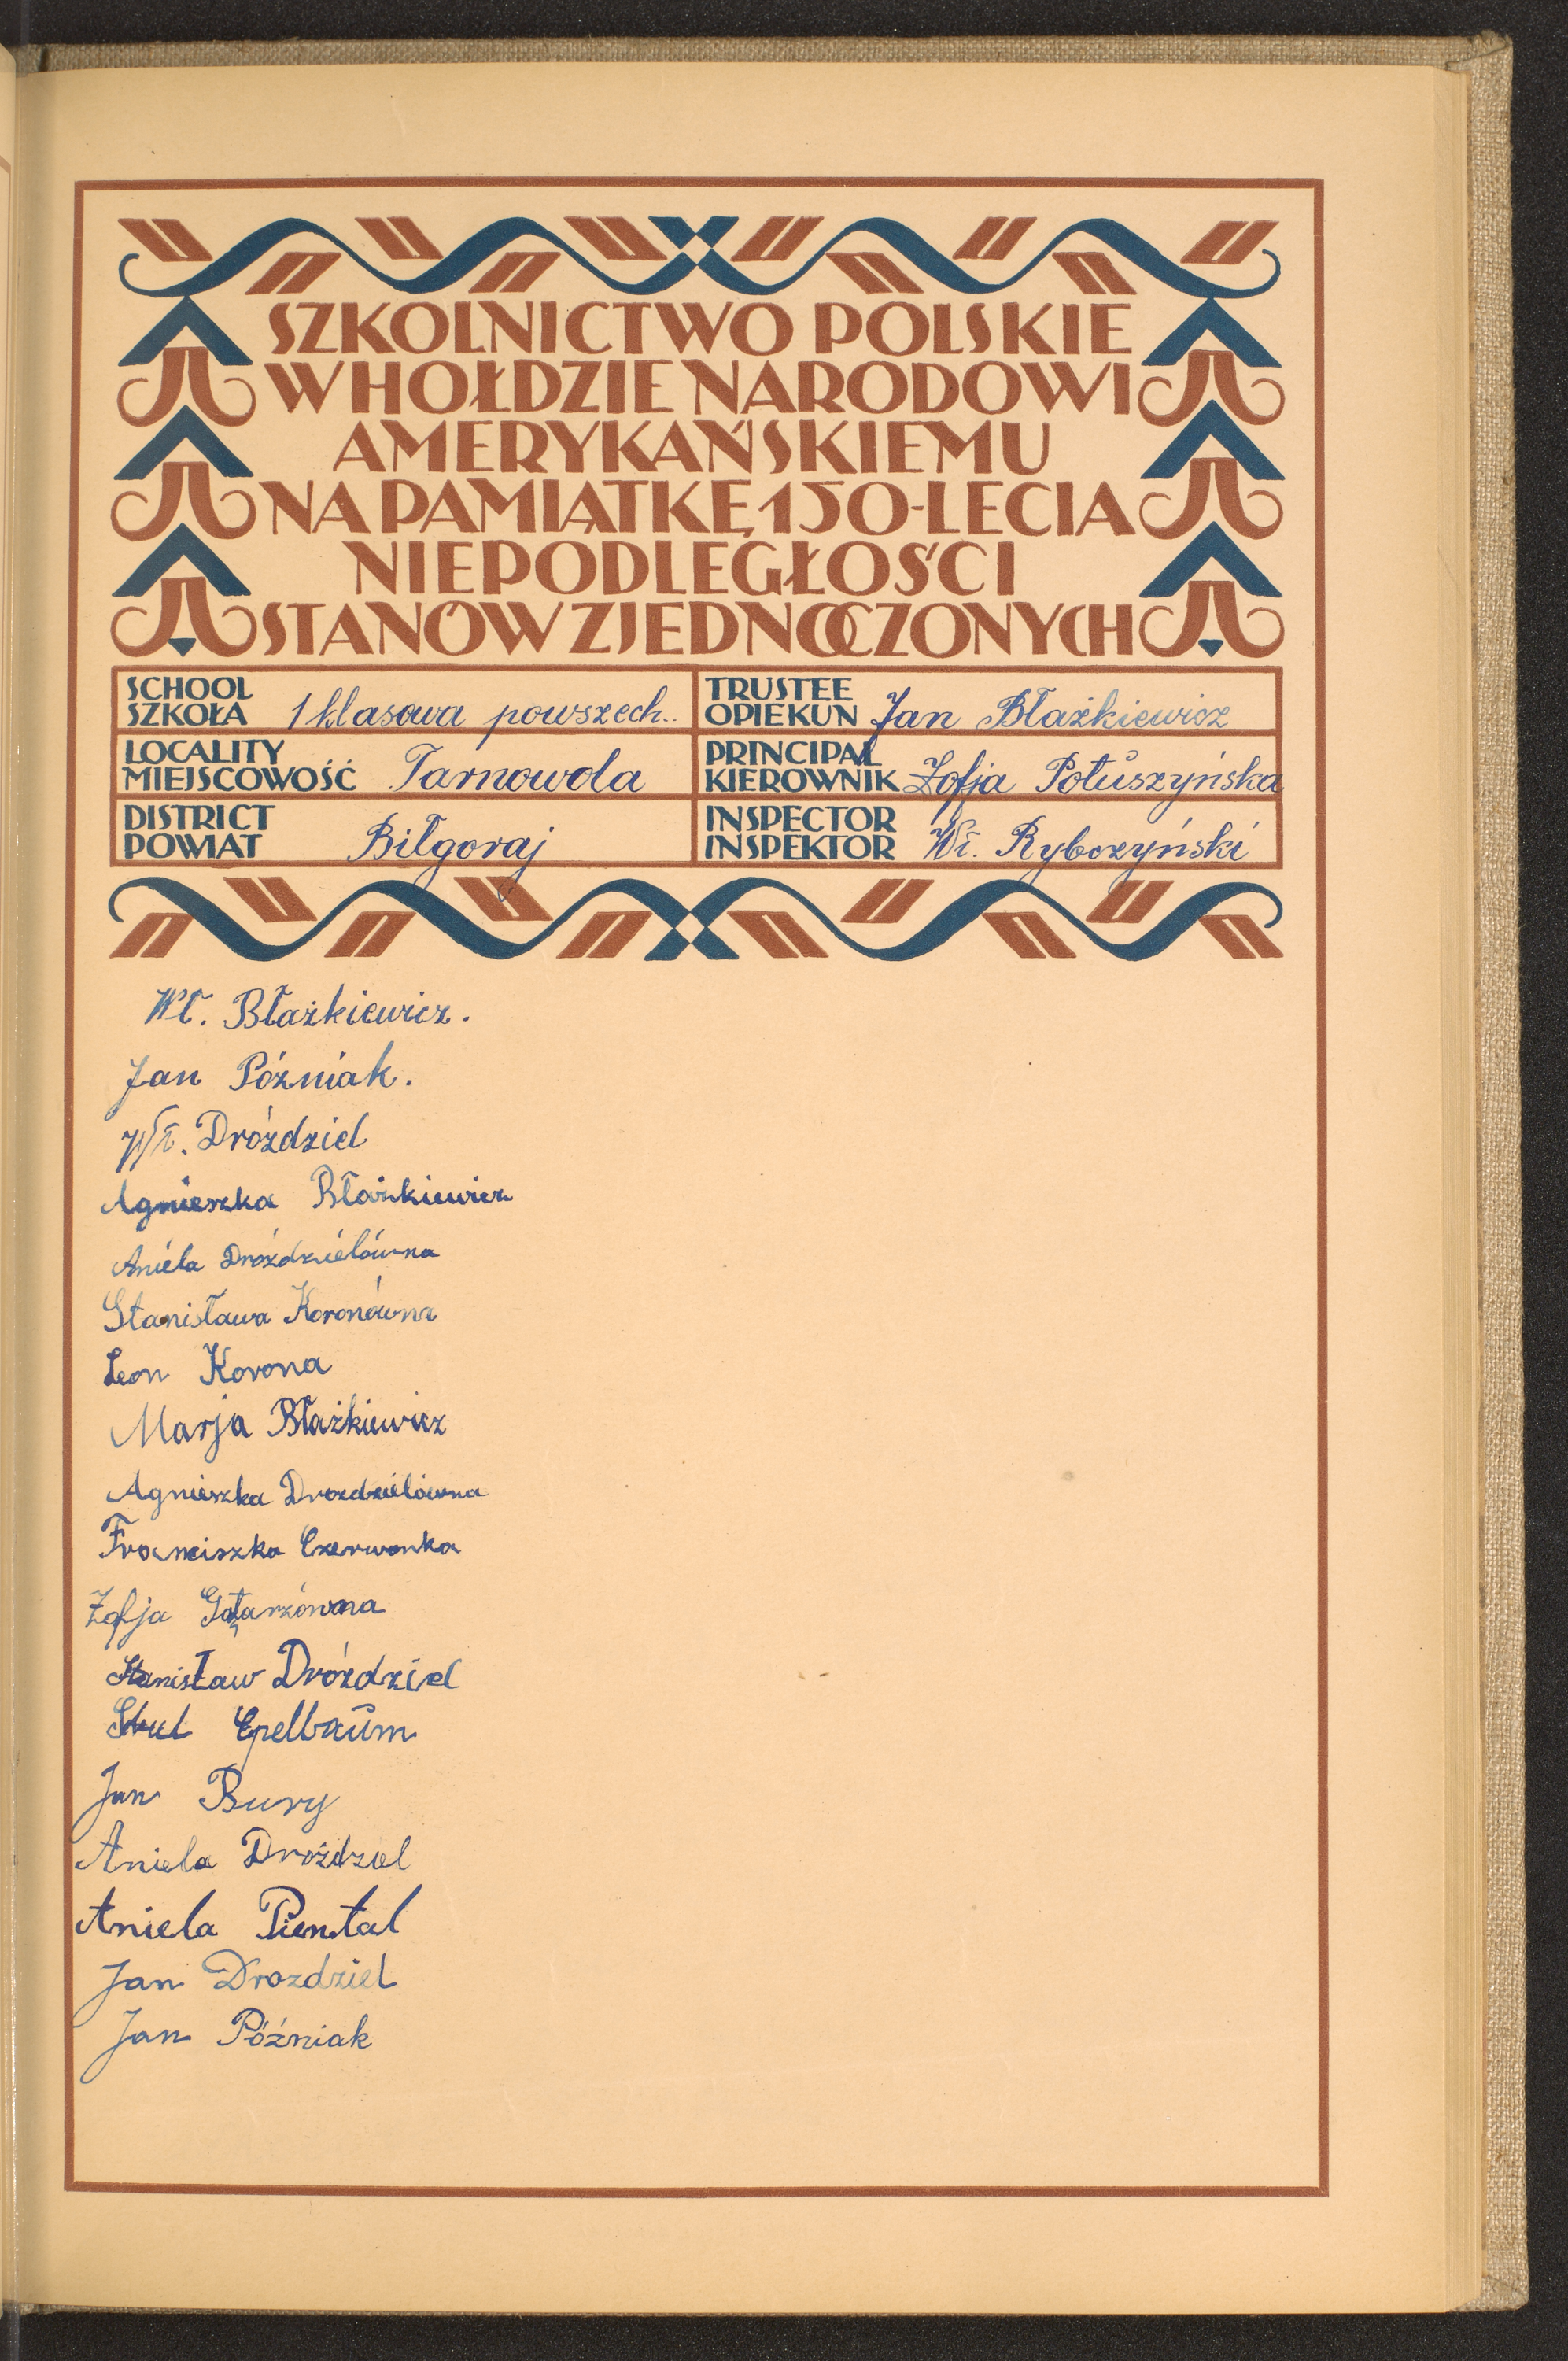 SZKOLNICTWO POLSKIE
W HOŁDZIE NARODOWI
AMERYKAŃSKIEMU
NA PAMIĄTKĘ 150-LECIA
NIEPODLEGŁOŚCI
STANÓW ZJEDNOCZONYCH
SCHOOL
SZKOŁA 1 klasowa powszech..
TRUSTEE
OPIEKUN Jan Błażkiewicz
LOCALITY
MIEJSCOWOŚĆ Tarnowola
PRINCIPAL
KIEROWNIK Zofja Połuszyńska
DISTRICT
POWIAT Biłgoraj
INSPECTOR
INSPEKTOR Wł. Rybczyński
Wł. Błażkiewicz.
Jan Póżniak.
Wł. Dróżdziel
Agnieszka Błażkiewicz
Aniela Dróżdzielówna
Stanisława Koronówna
Leon Korona
Marja Błażkiewicz
Agnieszka Drozdzielówna
Franciszka Czerwonka
Zofja Gołarzówna
Stanisław Dróżdziel
Epelbaum
Jan Bury
Aniela Drożdziel
Aniela Piental
Jan Drozdziel
Jan Póżniak